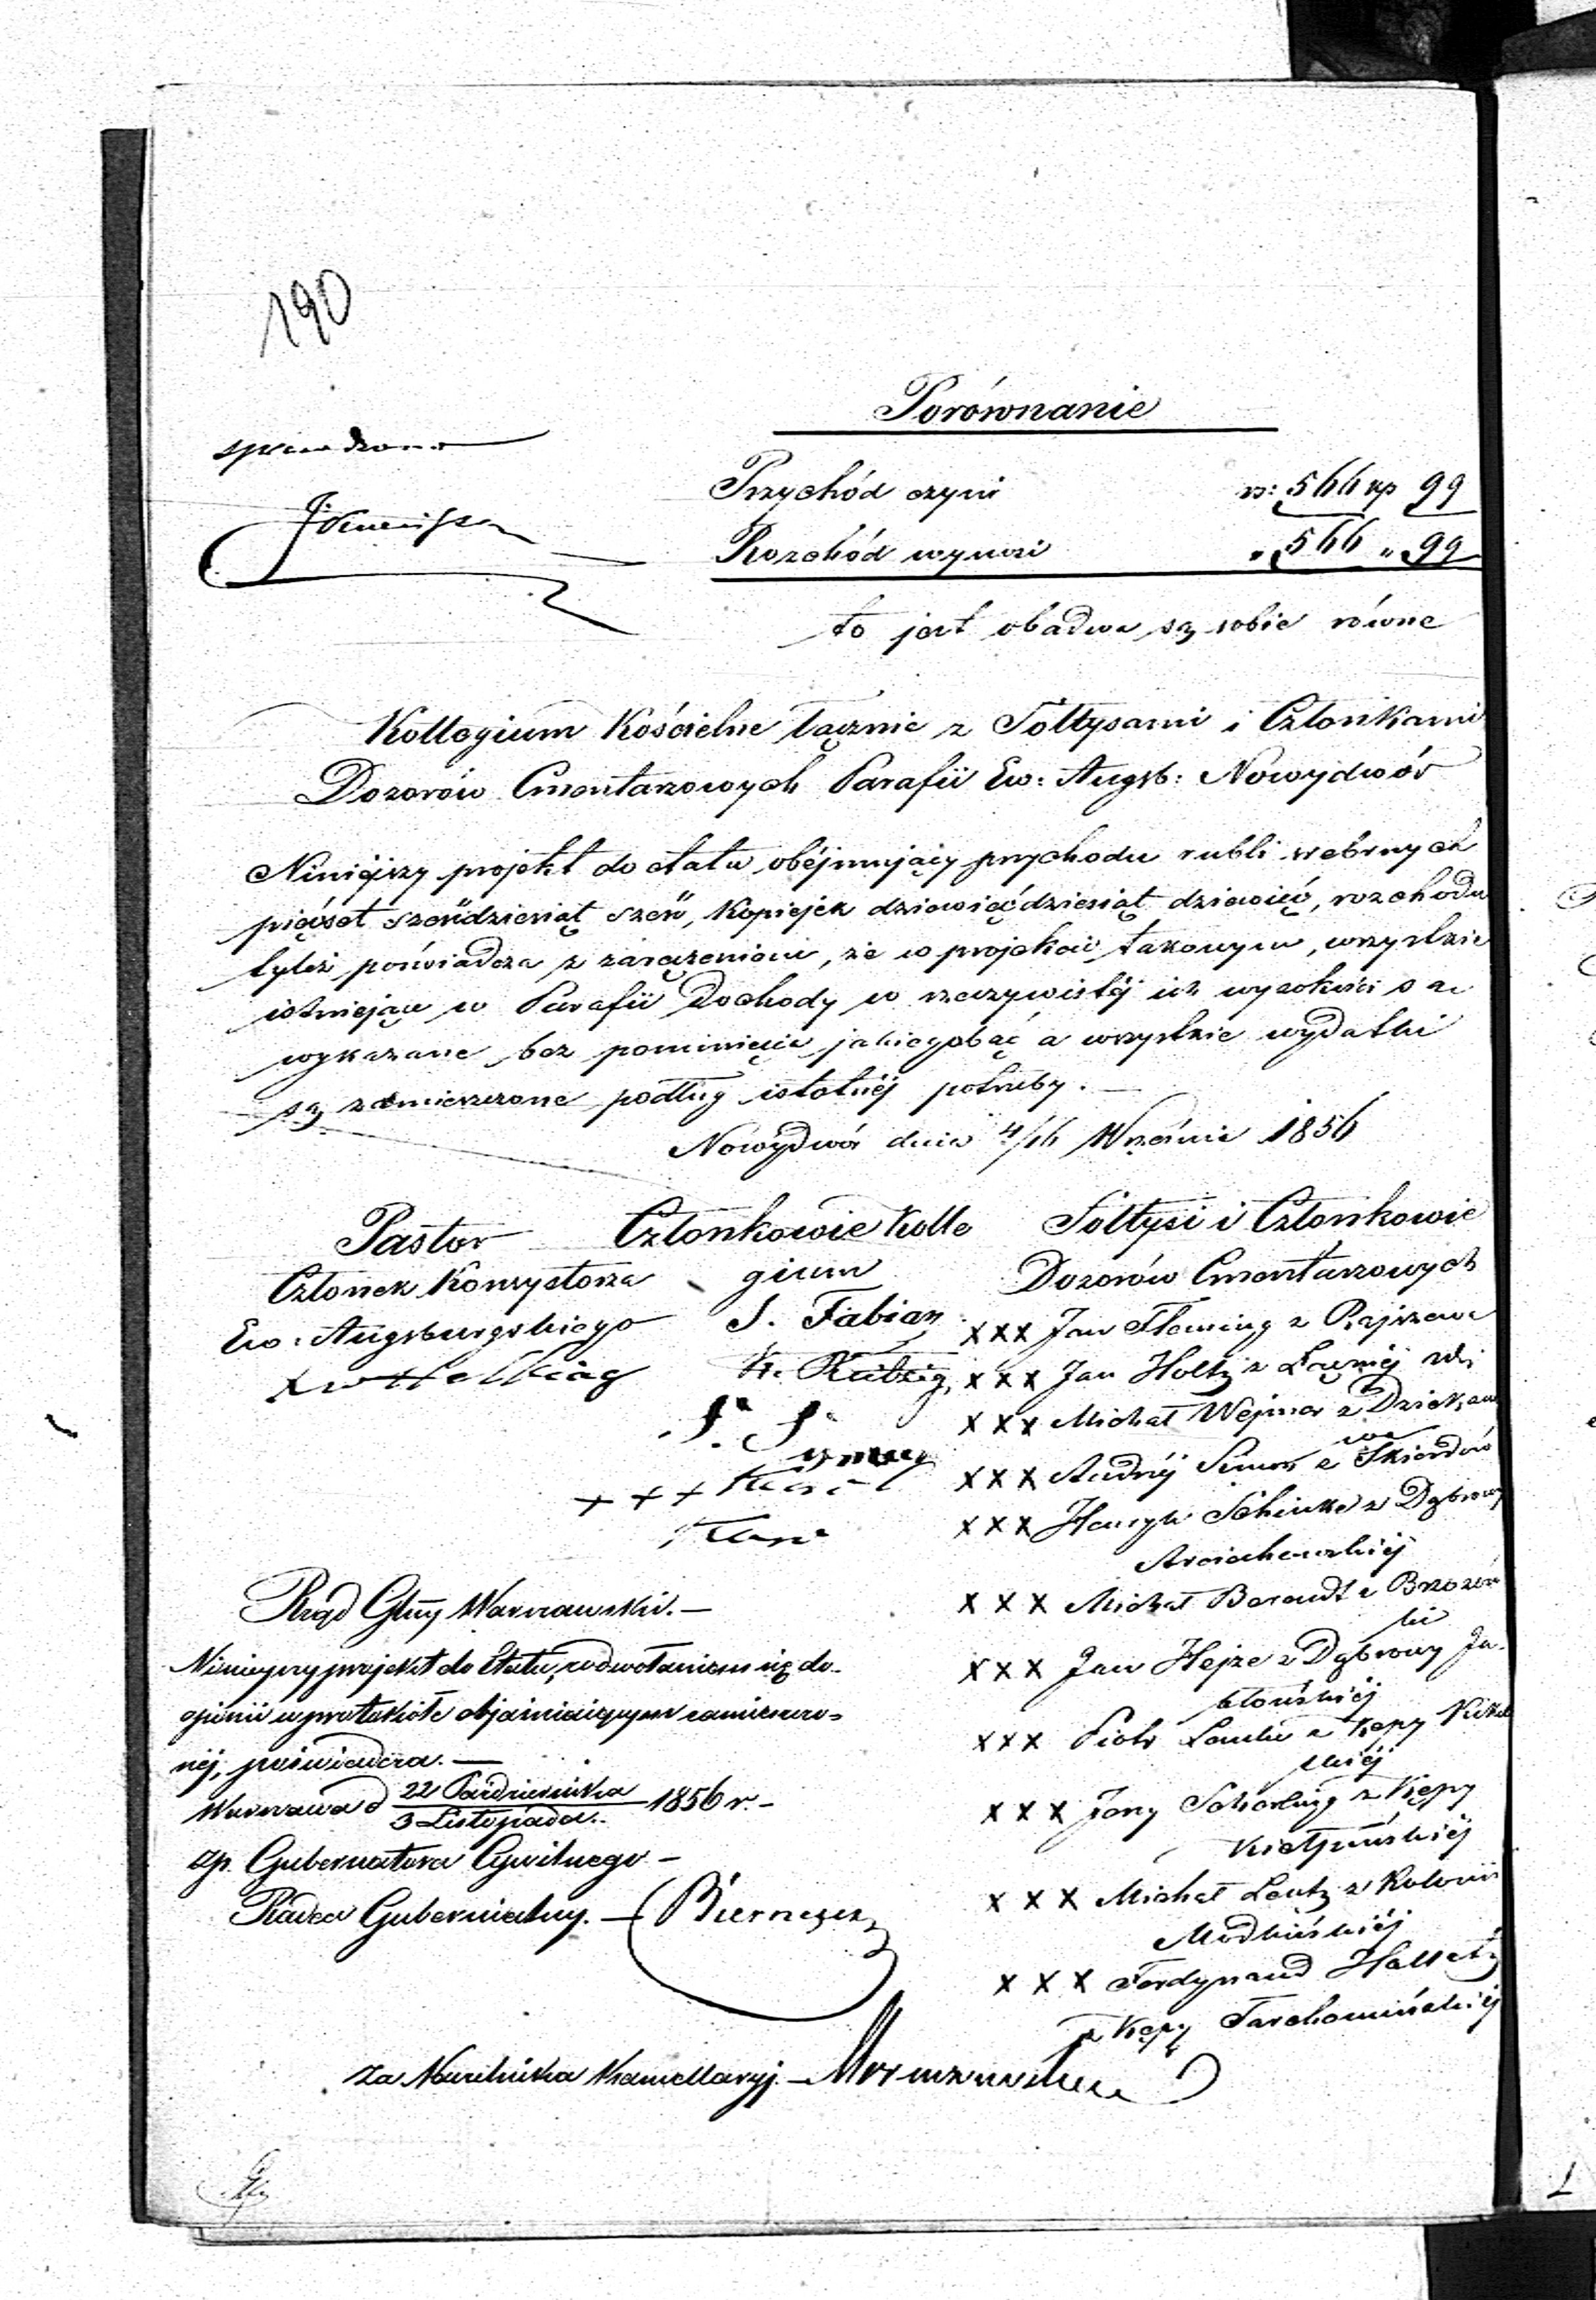 190
Porównanie
sprawdzono
Przychód czyni rs: 566 kp 99
Rozchód wynosi " 566 " 99
to jest obadwa są sobie równe
Kollegium Kościelne łącznie z Sołtysami i Członkami
Dozorów Cmentarzowych Parafii Ew: Augsb: Nowydwór
Niniejszy projekt do etatu obejmujący przychodu rubli srebrnych
pięćset sześdziesiąt sześć, kopiejek dziewięćdziesiąt dziewięć, rozchodu
tyleż poświadcza z zaręczeniem, że w projekcie takowym, wszystkie
istniejące w Parafii Dochody w rzeczywistéj ich wysokości są
wykazane bez pominięcia jakiegobąć a wszystkie wydatki
są zamieszczone podług istotnéj potrzeby. —
Nowydwór dnia 4/16 Września 1856
Pastor
Członek Konsystorza
Ew: Augsburgskiego
Członkowie Kolle
gium
S. Fabian
+ + +
Sołtysi i Członkowie
Dozorów Cmentarzowych
xxx Jan Fleming z Rajszewa
xxx Jan Holtz z Łąznéj Wsi
xxx Michał Wejmer z Dziekano
wa
xxx Andréj Simon z Skierdów
xxx Henryk Schinke z Dąbrowy
xxx Michał Barandt z Brzozów
ki
xxx Jan Hejze z Dąbrowy Ja-
błońskiéj
xxx Piotr Lautz z Kępy Kikol
skiéj
xxx Jerzy z Kępy
Kiełpińskiéj
xxx Michał Lentz z Kolonii
Modlińskiéj
xxx Ferdynand
z Kępy Tarchomińskiéj
Rząd Glny Warszawski. —
Niniejszy projekt do Etatu, z odwołaniem się do
opinii w protokóle objaśniającym zamieszczo-
néj, poświadcza. —
Warszawa d 22 Października / 3 Listopada 1856 r. -
zp. Gubernatora Cywilnego -
Radca Gubernialny. —
Za Naczelnika Kancellaryj. —